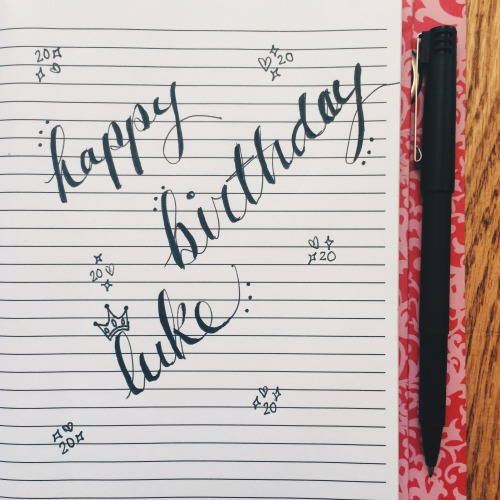 20
20
happy
birthday
20
20
luke
20
20